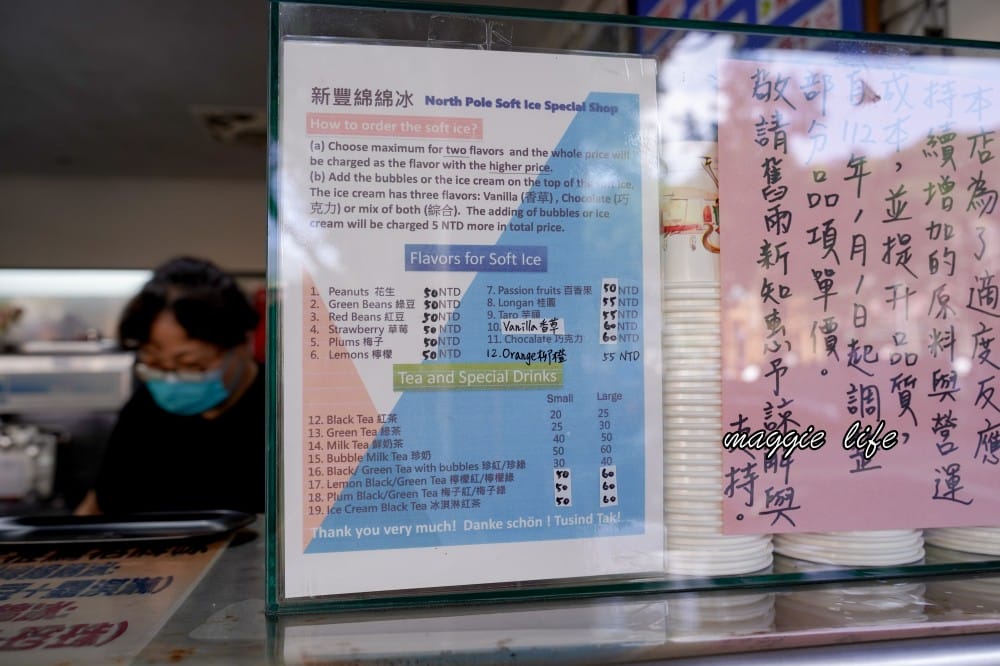 新豐綿綿冰 North Pole Soft Ice Special Shop
How to order the soft ice?
(a) Choose maximum for two flavors and the whole price will
be charged as the flavor with the higher price.
(b) Add the bubbles or the ice cream on the top of the soft ice.
The ice cream has three flavors: Vanilla (香草) , Chocolate (巧
克力) or mix of both (綜合). The adding of bubbles or ice
cream will be charged 5 NTD more in total price.
Flavors for Soft Ice
1. Peanuts 花生 50 NTD
2. Green Beans 綠豆 50 NTD
3. Red Beans 紅豆 50 NTD
4. Strawberry 草莓 50 NTD
5. Plums 梅子 50 NTD
6. Lemons 檸檬 50 NTD
7. Passion fruits 百香果 50 NTD
8. Longan 桂圓 55 NTD
9. Taro 芋頭 55 NTD
10. Vanilla 香草 60 NTD
11. Chocolate 巧克力 60 NTD
12. Orange 柳橙 55 NTD
Tea and Special Drinks
Small Large
12. Black Tea 紅茶 20 25
13. Green Tea 綠茶 25 30
14. Milk Tea 鮮奶茶 40 50
15. Bubble Milk Tea 珍奶 50 60
16. Black/ Green Tea with bubbles 珍紅/珍綠 30 40
17. Lemon Black/Green Tea 檸檬紅/檸檬綠 50 60
18. Plum Black/Green Tea 梅子紅/梅子綠 50 60
19. Ice Cream Black Tea 冰淇淋紅茶 50 60
Thank you very much! Danke schön ! Tusind Tak!
本店為了適度反應
持續增加的原料與營運
成本,並提升品質,
自112年1月1日起調整
部分品項單價。
敬請舊雨新知惠予諒解與
支持。
maggie life